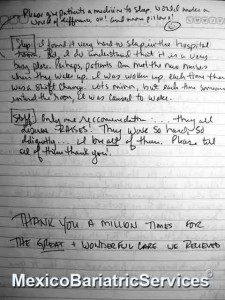 Please give patients a machine to sleep. Would make a
world of difference xo! And more pillows!
[Sleep] I found it very hard to sleep in the hospital
But, I do understand that it is a very
busy place. Perhaps, patients can met the new nurses
when they wake up. I was woken up each time there
was a shift change. Lots minor, but each time someone
entered the room, it was caused to wake.
[Staff] Only one reccommendation ... they all
deserve RAISES. They work so hard, so
diligently... I all of them. Please tell
all of them thank you.
THANK YOU A MILLION TIMES FOR
THE GREAT + WONDERFUL CARE WE RECIEVED
MexicoBariatricServices